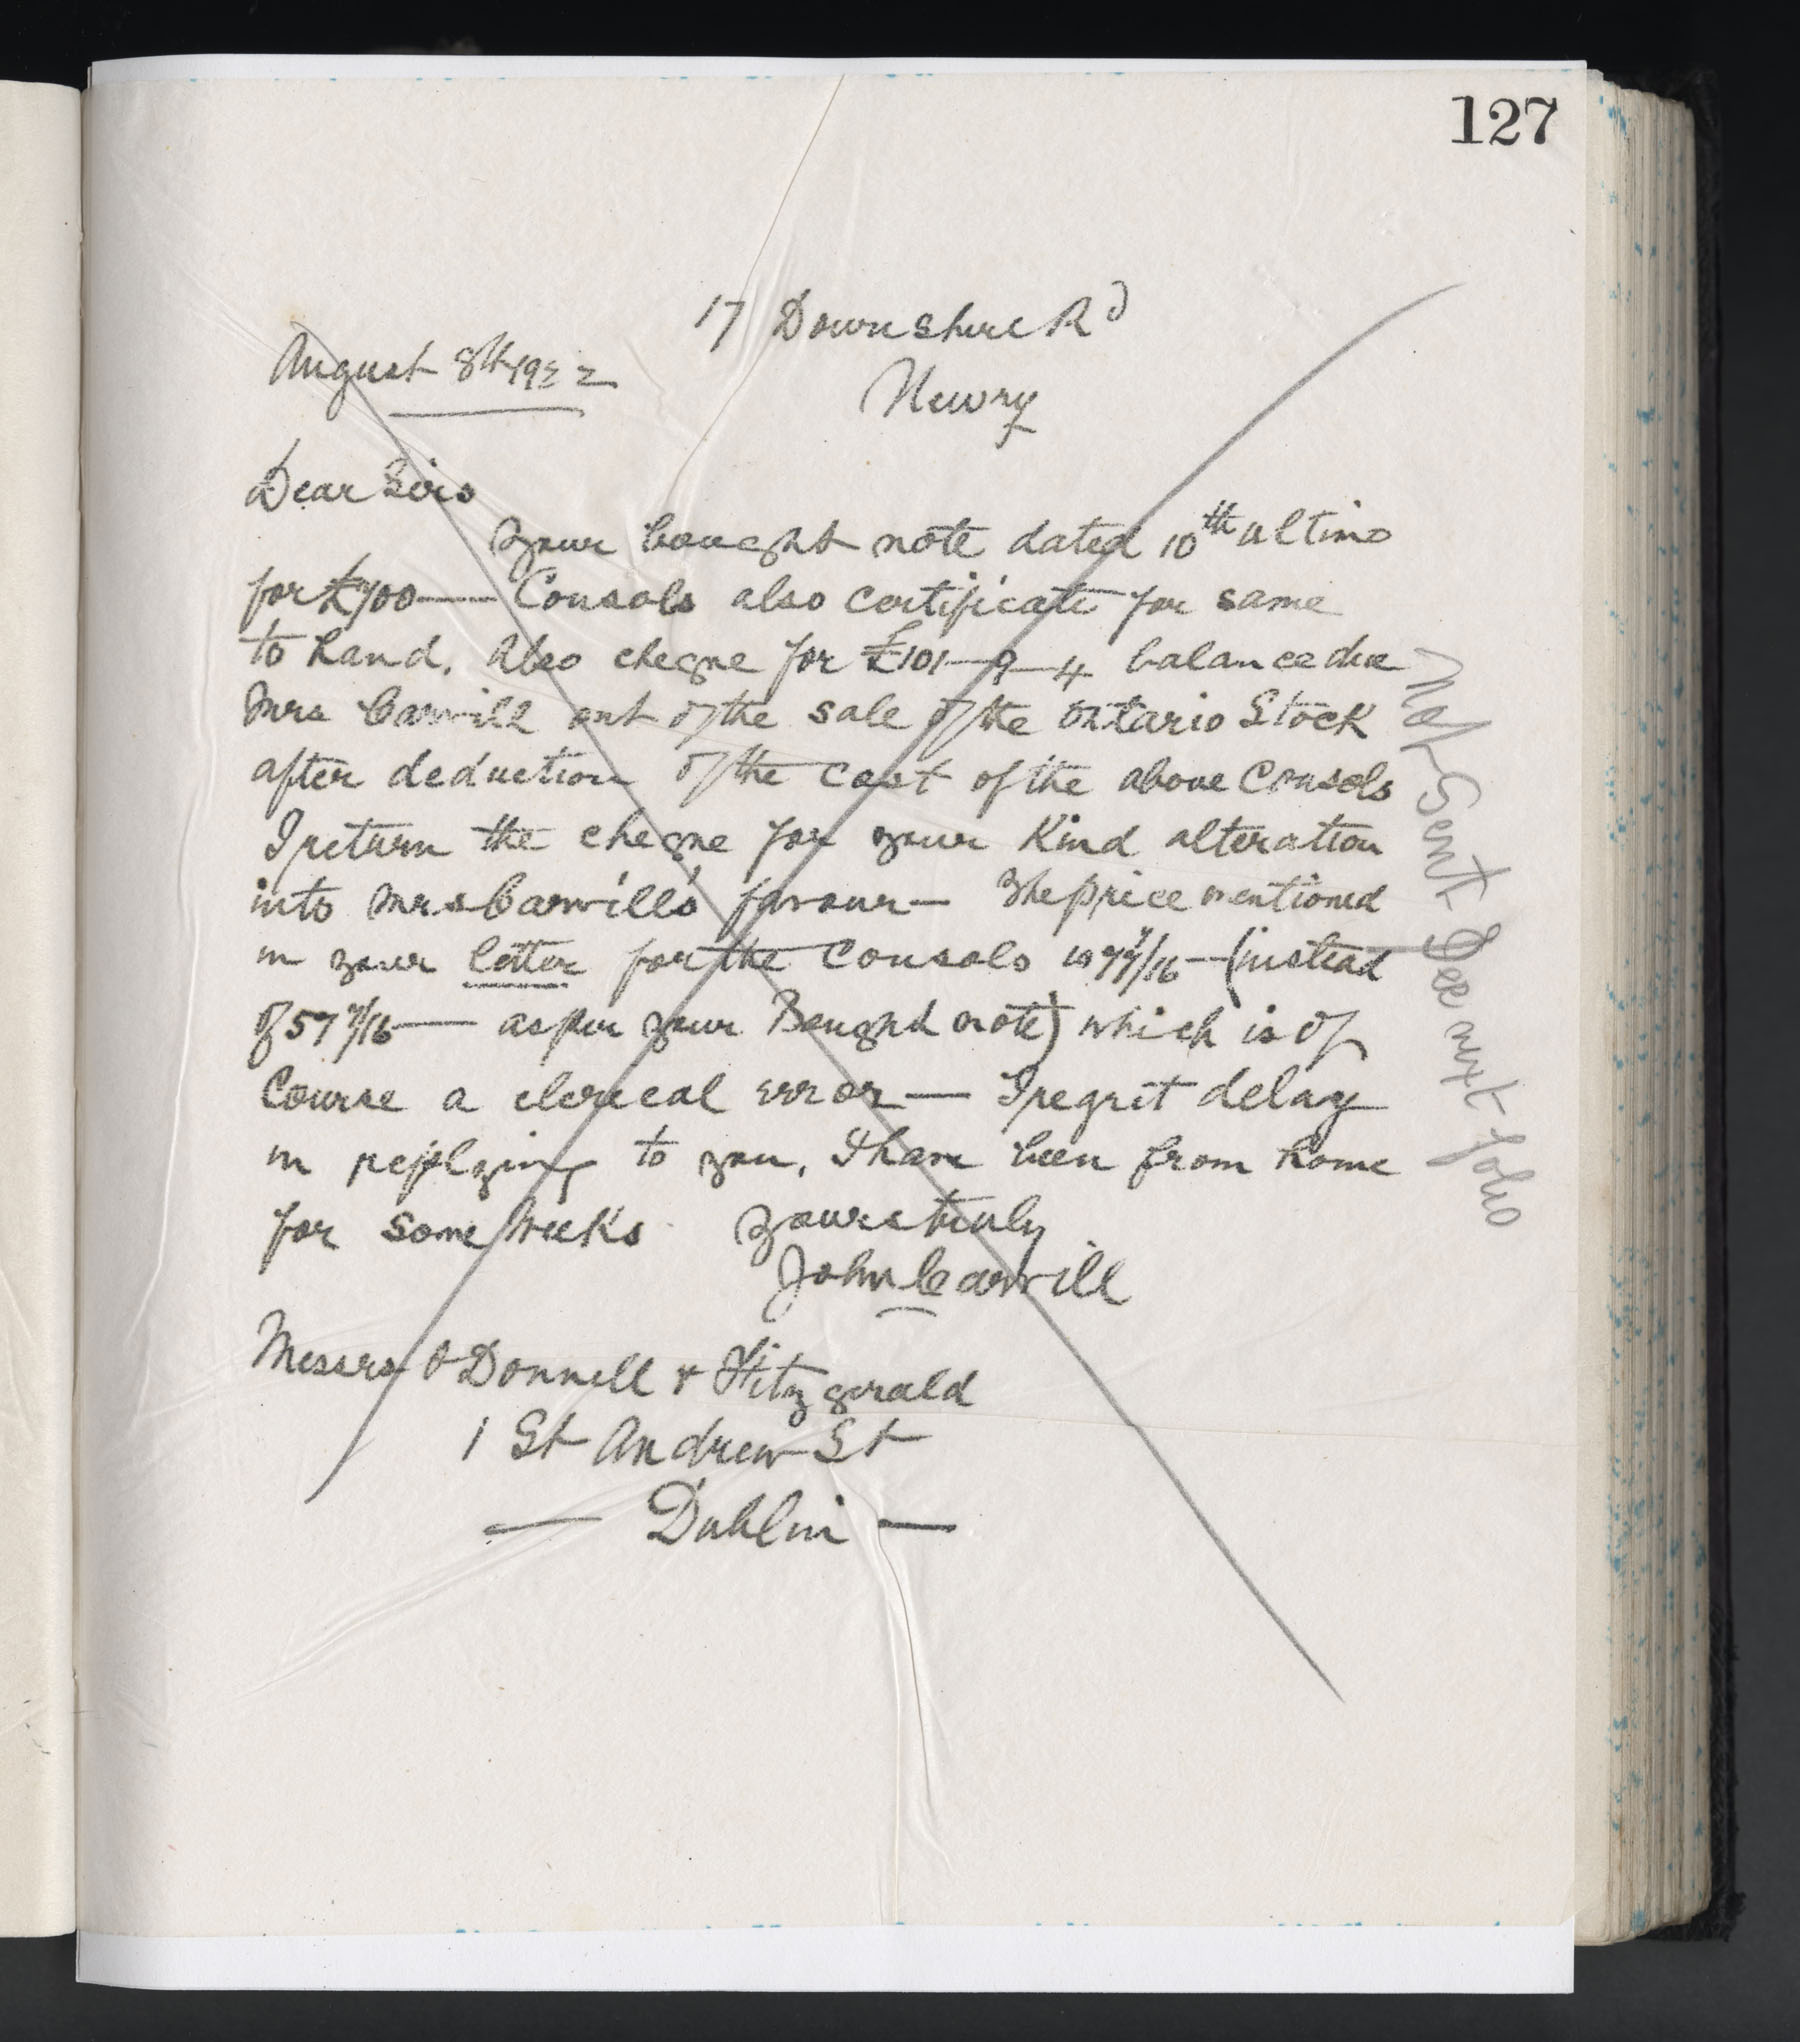 127
17 Downshire Rd
August 8th 1922
Newry
Dear Sirs
Your bought note dated 10th ultimo
for £700 — Consols also certificate for same
to hand. Also cheque for £101—9—4 balance due
Mrs Carvill out of the sale of the Ontario Stock
after deduction of the cost of the above Consols
I return the cheque for your Kind alteration
into Mrs Carvill's favour — The price mentioned
in your letter for the Consols is 77 7/16 — (instead
of 57 7/16 — as per your Bought note) which is of
Course a clerical error — I regret delay
in replying to you, I have been from home
for some weeks Yours truly
John Carvill
Messrs O Donnell & Fitzgerald
1 St Andrew St
— Dublin —
Not Sent See next folio